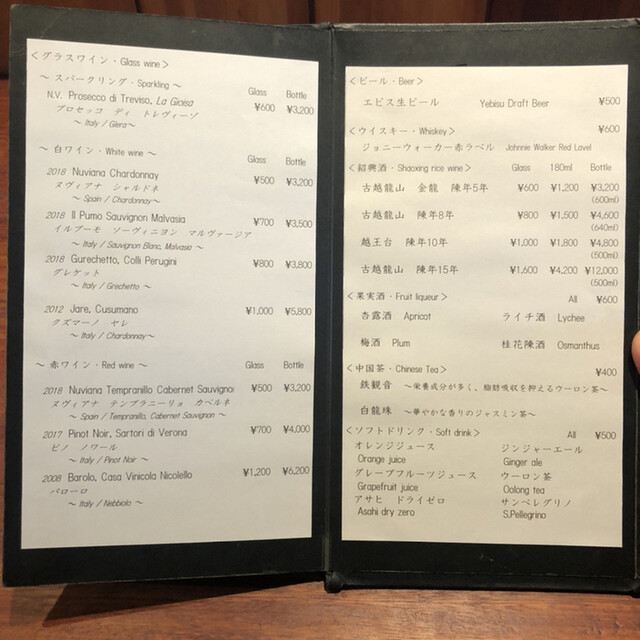 ＜グラスワイン・Glass wine＞
～ スパークリング・Sparkling ～ Glass Bottle
N.V. Prosecco di Treviso, La Gioisa ¥600 ¥3,200
プロセッコ ディ トレヴィーゾ
～ Italy / Glera～
～ 白ワイン・White wine ～ Glass Bottle
2018 Nuviana Chardonnay ¥500 ¥3,200
ヌヴィアナ シャルドネ
～ Spain / Chardonnay～
2018 Il Pumo Sauvignon Malvasia ¥700 ¥3,500
イルプーモ ソーヴィニヨン マルヴァージア
～ Italy / Sauvignon Blanc, Malvasia ～
2018 Gurechetto, Colli Perugini ¥800 ¥3,800
グレケット
～ Italy / Grechetto ～
2012 Jare, Cusumano ¥1,000 ¥5,800
クズマーノ ヤレ
～ Italy / Chardonnay～
～ 赤ワイン・Red wine ～ Glass Bottle
2018 Nuviana Tempranillo Cabernet Sauvignon ¥500 ¥3,200
ヌヴィアナ テンプラニーリョ カベルネ
～ Spain / Tempranillo, Cabernet Sauvignon ～
2017 Pinot Noir, Sartori di Verona ¥700 ¥4,000
ピノ ノワール
～ Italy / Pinot Noir ～
2008 Barolo, Casa Vinicola Nicolello ¥1,200 ¥6,200
バローロ
～ Italy / Nebbiolo ～
＜ビール・Beer＞
エビス生ビール Yebisu Draft Beer ¥500
＜ウイスキー・Whiskey＞ ¥600
ジョニーウォーカー赤ラベル Johnnie Walker Red Lavel
＜紹興酒・Shaoxing rice wine＞ Glass 180ml Bottle
古越龍山 金龍 陳年5年 ¥600 ¥1,200 ¥3,200
(600ml)
古越龍山 陳年8年 ¥800 ¥1,500 ¥4,600
(640ml)
越王台 陳年10年 ¥1,000 ¥1,800 ¥4,800
(500ml)
古越龍山 陳年15年 ¥1,600 ¥4,200 ¥12,000
(500ml)
＜果実酒・Fruit liqueur＞ All ¥600
杏露酒 Apricot ライチ酒 Lychee
梅酒 Plum 桂花陳酒 Osmanthus
＜中国茶・Chinese Tea＞ ¥400
鉄観音 ～栄養成分が多く、脂肪吸収を抑えるウーロン茶～
白龍珠 ～華やかな香りのジャスミン茶～
＜ソフトドリンク・Soft drink＞ All ¥500
オレンジジュース ジンジャーエール
Orange juice Ginger ale
グレープフルーツジュース ウーロン茶
Grapefruit juice Oolong tea
アサヒ ドライゼロ サンペレグリノ
Asahi dry zero S.Pellegrino